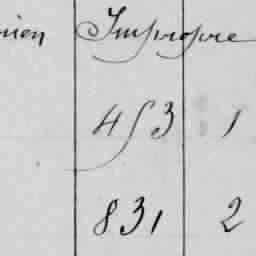 rien Impropre
453 1
831 2